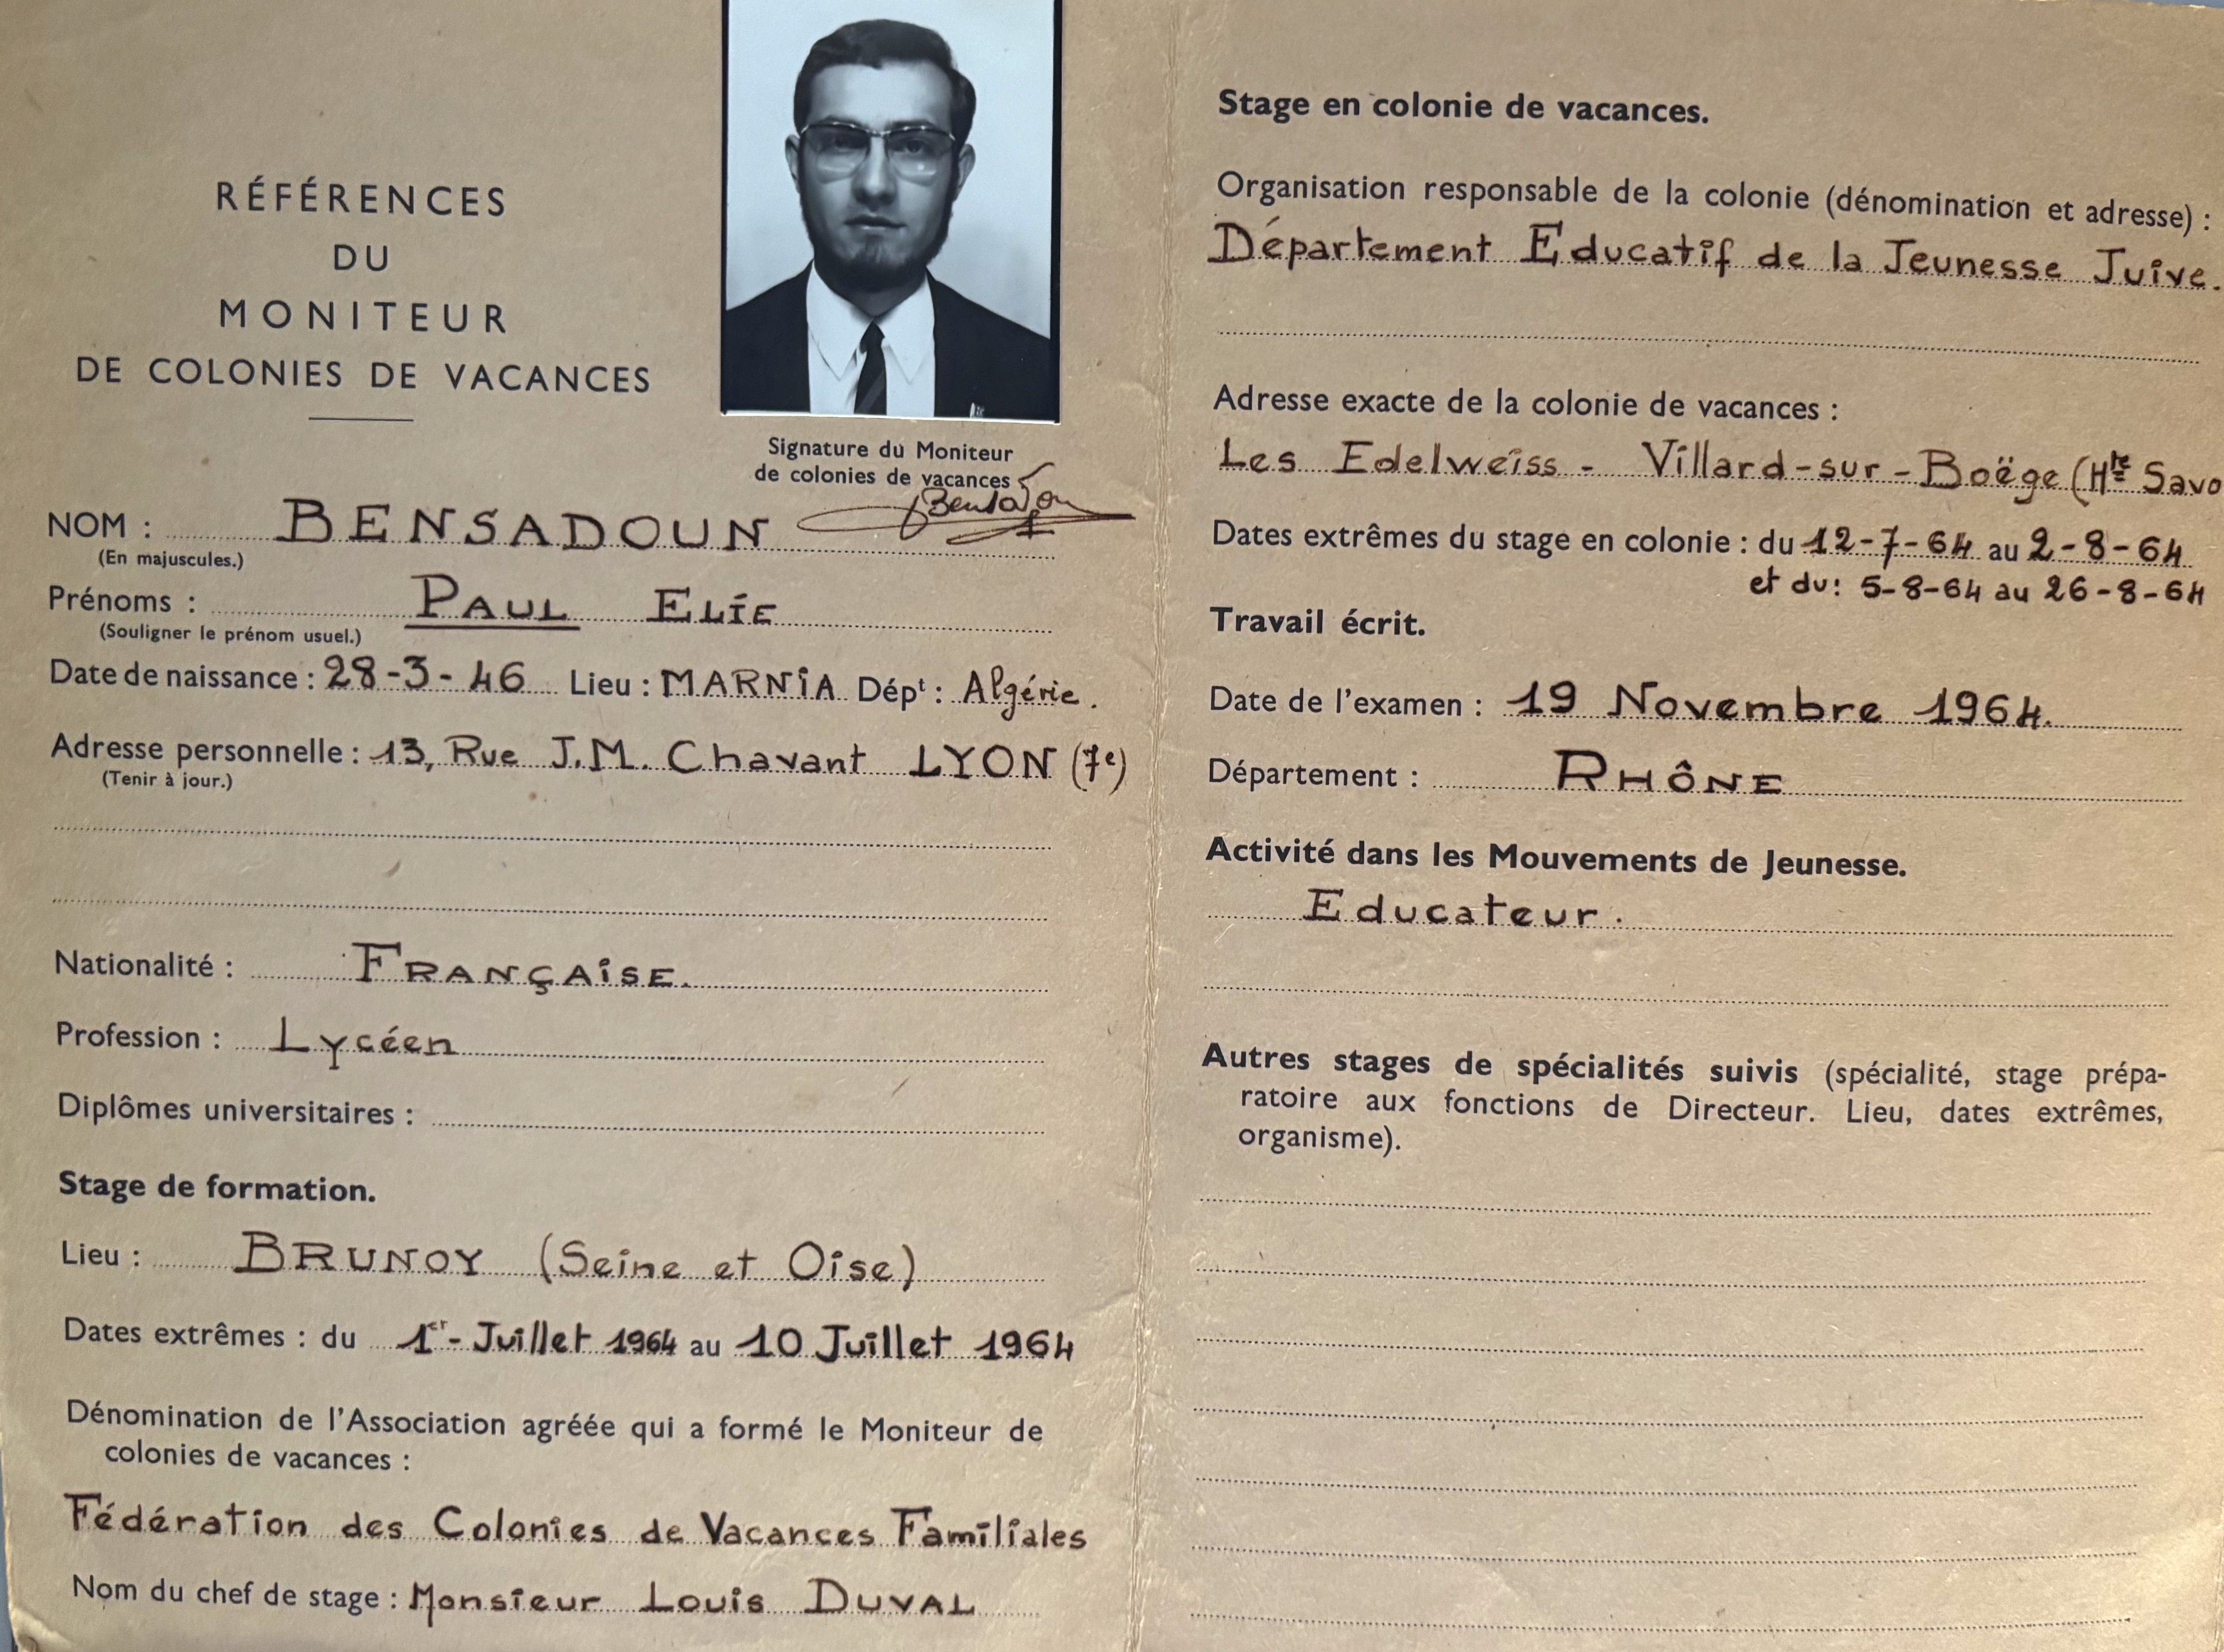 RÉFÉRENCES
DU
MONITEUR
DE COLONIES DE VACANCES
Signature du Moniteur
de colonies de vacances
Bensadoun
NOM : BENSADOUN
(En majuscules.)
Prénoms : PAUL ELIE
(Souligner le prénom usuel.)
Date de naissance : 28-3-46 Lieu : MARNIA Dépt : Algérie.
Adresse personnelle : 13, Rue J.M. Chavant LYON (7e)
(Tenir à jour.)
Nationalité : FRANÇAISE.
Profession : Lycéen
Diplômes universitaires :
Stage de formation.
Lieu : BRUNOY (Seine et Oise)
Dates extrêmes : du 1er- Juillet 1964 au 10 Juillet 1964
Dénomination de l'Association agréée qui a formé le Moniteur de
colonies de vacances :
Fédération des Colonies de Vacances Familiales
Nom du chef de stage : Monsieur Louis DUVAL
Stage en colonie de vacances.
Organisation responsable de la colonie (dénomination et adresse) :
Département Educatif de la Jeunesse Juive.
Adresse exacte de la colonie de vacances :
Les Edelweiss - Villard-sur-Boëge (Hte Savo
Dates extrêmes du stage en colonie : du 12-7-64 au 2-8-64
et du : 5-8-64 au 26-8-64
Travail écrit.
Date de l'examen : 19 Novembre 1964.
Département : RHÔNE
Activité dans les Mouvements de Jeunesse.
Educateur.
Autres stages de spécialités suivis (spécialité, stage prépa-
ratoire aux fonctions de Directeur. Lieu, dates extrêmes,
organisme).